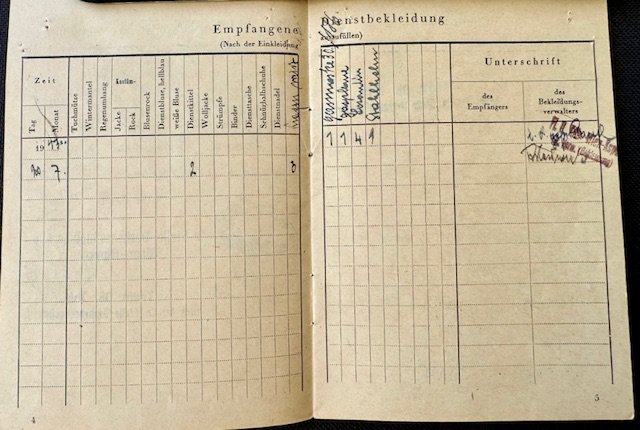 Empfangene Dienstbekleidung
(Nach der Einkleidung ausfüllen)
Zeit
Tag
Monat
Tuchmütze
Wintermantel
Regenumhang
Kostüm-
Jacke
Rock
Blusenrock
Dienstbluse, hellblau
weiße Bluse
Dienstkittel
Wolljacke
Strümpfe
Binder
Diensttasche
Schnürhalbschuhe
Dienstnadel
Gasmaske
Stahlhelm
Unterschrift
des
Empfängers
des
Bekleidungs-
verwalters
19
7.
2
1 1 4 1
4
5